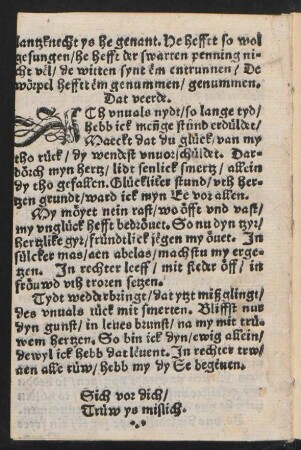 lantzknecht ys he genant. He hefft so wol
gesungen/he hefft der swarren penning ni-
cht vel/ de witten synt em entrunnen/ De
wörpel hefft em genummen/ genummen.
Dat veerde.
ICh vnuals nydt/ so lange tyd/
hebb ick menge stund erdüldet/
Maeckt dat du glück/ van my
tho rück/ dy wendest vnuorschüldet. Dar-
dörch myn hertz/ lidt senlick smertz/ allein
dy tho gefallen. Glückliker stund/ vth her-
tzen grundt/ ward ick myn Ee vor allen.
My möyet nein rast/ wo offt vnd vast/
my vnglück hefft bedröuet. So nu dyn tzyr/
hertzlike gyr/ fründtlick jegen my öuet. In
sülcker mas/ aen abelas/ machstu my erge-
tzen. In rechter leeff/ mit steder öff/ in
fröuwd vth troren setzen.
Tydt wedderbringt/ dat ytzt mißglingt/
des vnuals rück mit smerten. Bliffst nur
dyn gunst/ in leues brunst/ na my mit trü-
wem hertzen. So bin ick dyn/ ewig allein/
dewyl ick hebb dat leuent. In rechter trw/
aen alle rüw/ hebb my dy Se begeuen.
Sich vor dich/
Trüw ys mislich.